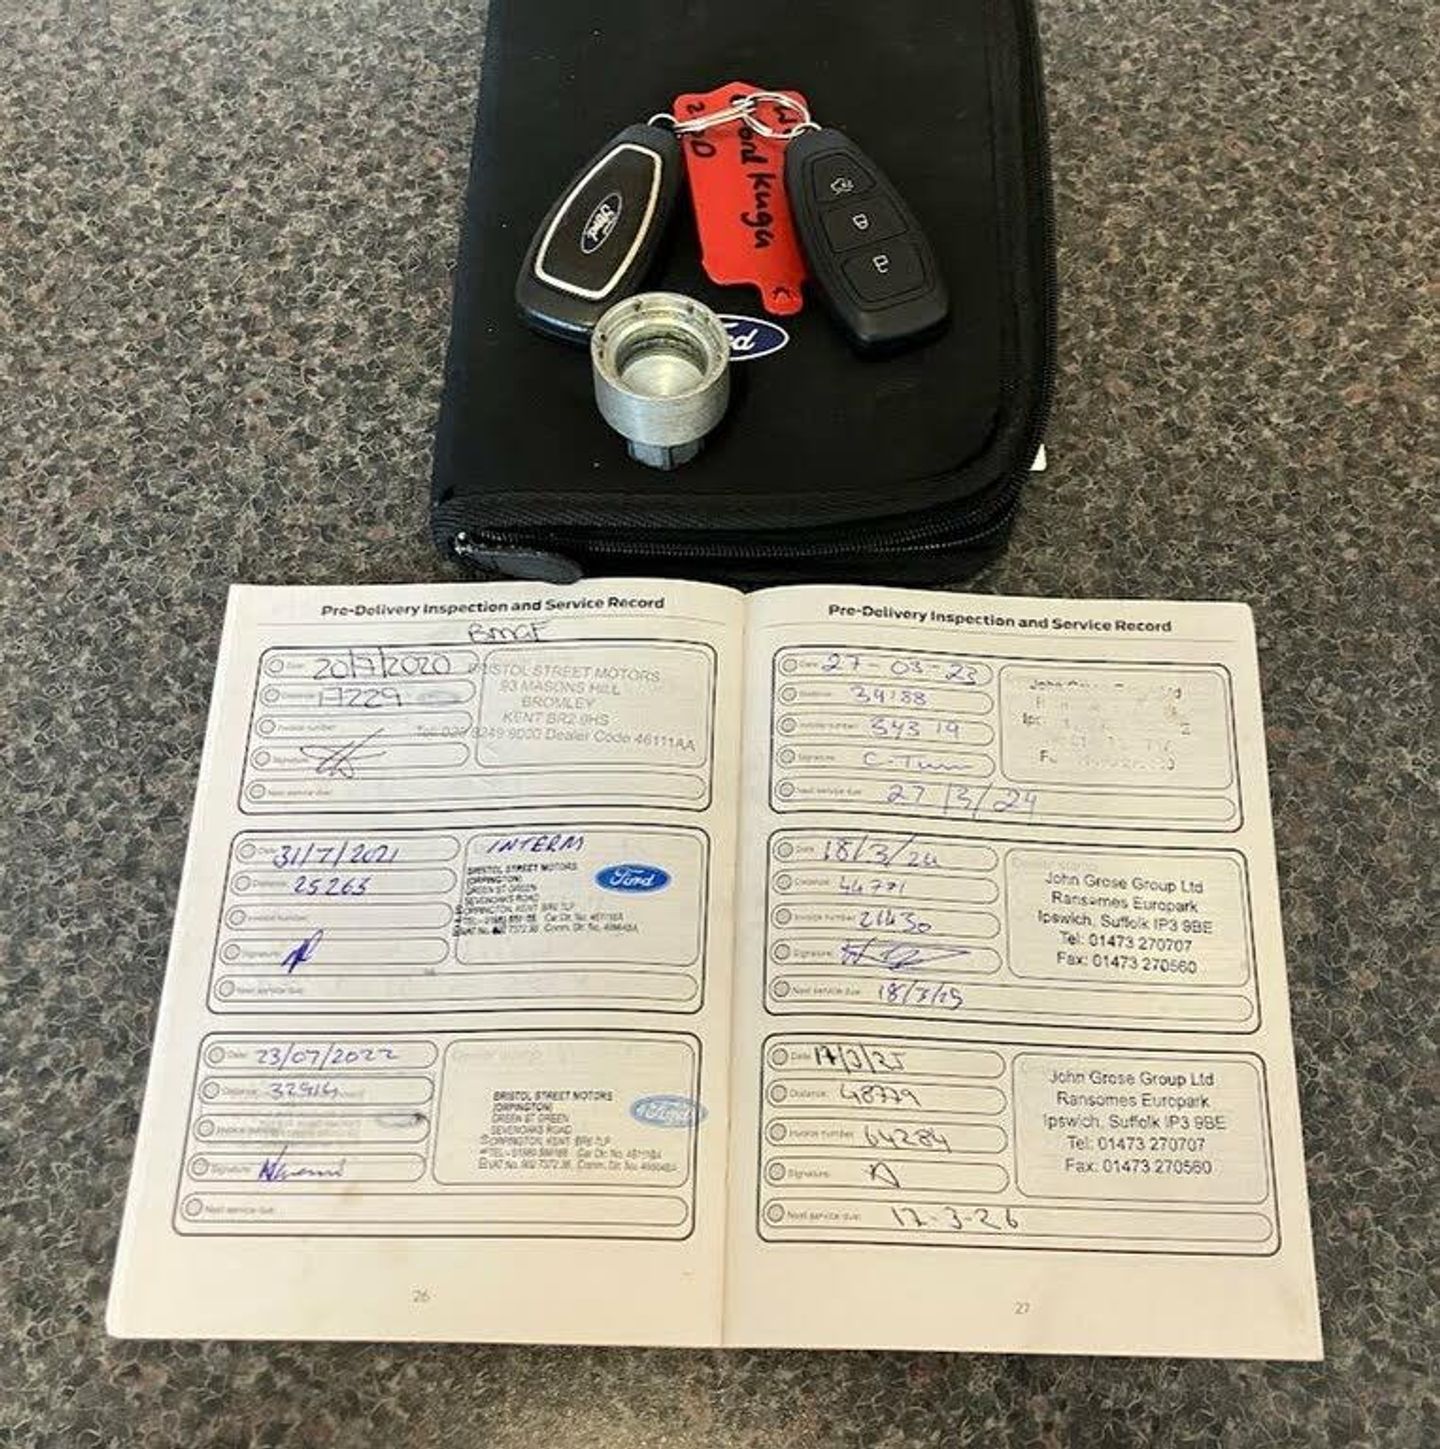 Ford
Ford Kuga
Pre-Delivery Inspection and Service Record
Date: 20/7/2020
17229
Invoice number:
Signature:
Next service due:
BRISTOL STREET MOTORS
93 MASONS HILL
BROMLEY
KENT BR2 9HS
Dealer Code 46111AA
Date: 31/7/2021
Distance: 25263
Invoice number:
Signature:
Next service due:
INTERM
BRISTOL STREET MOTORS
(ORPINGTON)
GREEN ST GREEN
SEVENOAKS ROAD
ORPINGTON, KENT BR6 7LP
Ford
Date: 23/07/2022
Distance:
Invoice number:
Signature:
Next service due:
BRISTOL STREET MOTORS
(ORPINGTON)
GREEN ST GREEN
SEVENOAKS ROAD
ORPINGTON, KENT BR6 7LP
Ford
26
Pre-Delivery Inspection and Service Record
Date: 27-03-23
Distance:
Invoice number: 34319
Signature:
Next service due: 27/3/24
Date: 18/3/24
Distance: 44771
Invoice number: 21430
Signature:
Next service due: 18/3/25
John Grose Group Ltd
Ransomes Europark
Ipswich, Suffolk IP3 9BE
Tel: 01473 270707
Fax: 01473 270560
Date: 17/3/25
Distance: 48779
Invoice number: 64284
Signature:
Next service due: 17-3-26
John Grose Group Ltd
Ransomes Europark
Ipswich, Suffolk IP3 9BE
Tel: 01473 270707
Fax: 01473 270560
27